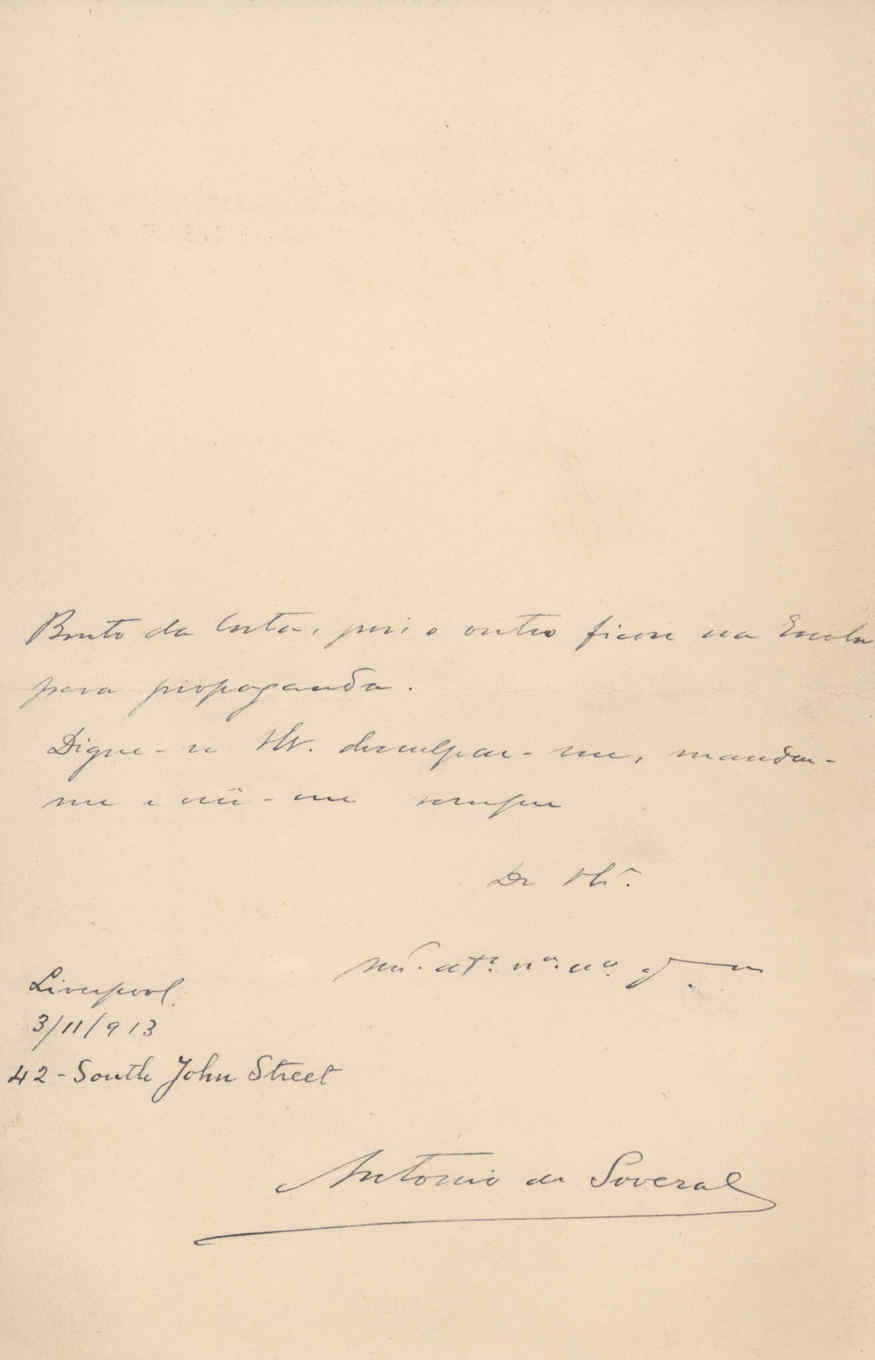 Bruto da Costa, pois o outro ficou na Escola
para propaganda.
Digne-se V. desculpar-me, mandar-
me e crêr-me sempre
De V.
Mto. atto. vor. 
Liverpool
3/11/913
42 - South John Street
Antonio de Soveral